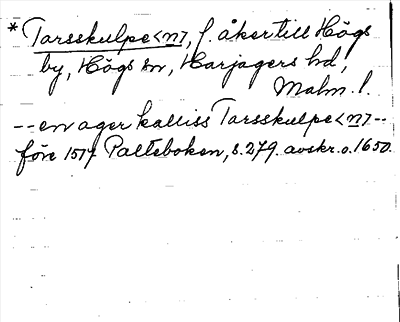 * Tarsskulpe<n>, f. åker till Högs
by, Högs sn, Harjagers hd,
Malm. l.
-- en ager kalliss Tarsskulpe<n> --
före 1517 Palteboken, s. 279. avskr. o. 1650.